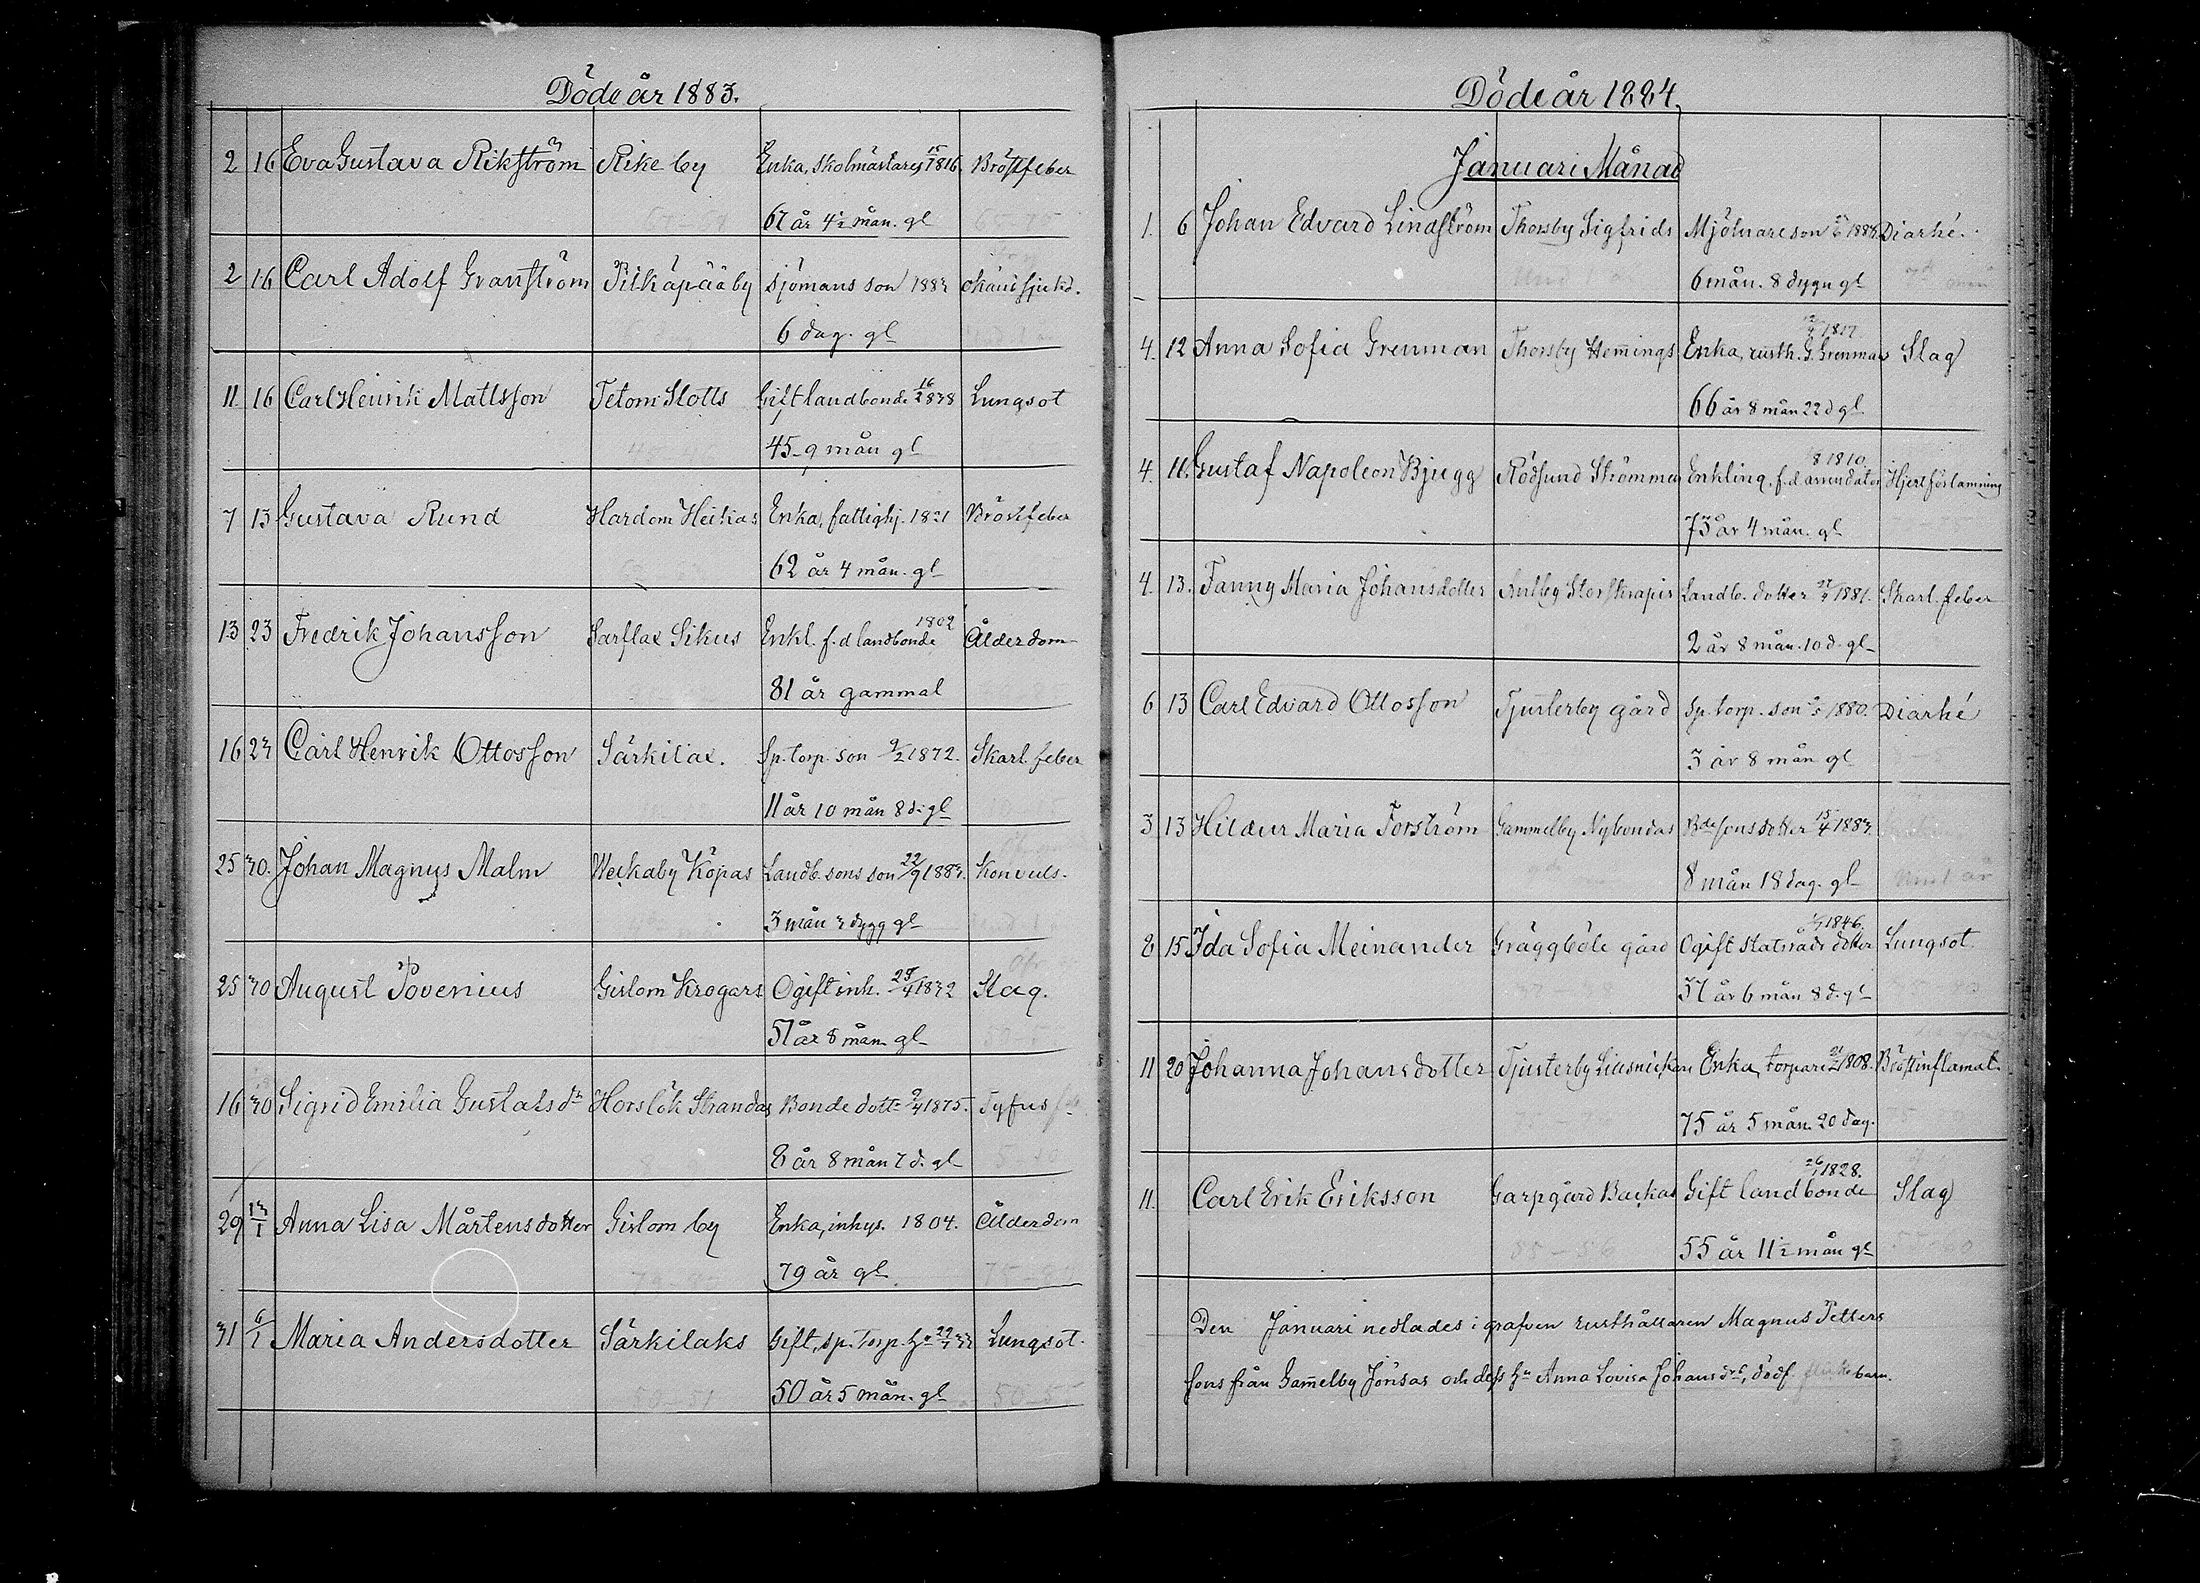 Döde år 1883.
2 16 Eva Gustava Rikström Rike by Enka, skolmästares 15/7 1816. Bröstfeber
67 år 4½ mån. gl
2 16 Carl Adolf Granström Pitkäpää by sjömans son 1883
6 dag. gl
11 16 Carl Henrik Mattsson Tetom Slotts Gift landbonde 16/2 1838 Lungsot
45 - 9 mån gl
7 13 Gustava Rund Hardom Heikas Enka, fattighj. 1821 Bröstfeber
62 år 4 mån. gl
13 23 Fredrik Johansson Sarflax Sikus Enkl. f.d landbonde 1802 Ålderdom
81 år gammal
16 23 Carl Henrik Ottosson Särkilax. Sp. torp. son 9/2 1872. Skarl. feber
11 år 10 mån 8 d. gl
25 30. Johan Magnus Malm Weckaby Köpas Landb. sons son 22/9 1883. Konvuls.
3 mån 3 dygg gl
25 30 August Povenius Gislom Krogars Ogift inh. 25/4 1832 Slag.
51 år 8 mån gl
16 30 Sigrid Emilia Gustafsdr Horslök Strandas Bonde dotr 9/4 1875. Tyfus
8 år 8 mån 7 d. gl
29 13/1 Anna Lisa Mårtensdotter Gislom by Enka, inhys. 1804. Ålderdom
79 år gl.
31 6/1 Maria Andersdotter Särkilaks Gift, sp. Torp. hu 22/7 33 Lungsot.
50 år 5 mån. gl
Döde år 1884.
Januari Månad
1. 6 Johan Edvard Lindström Thorsby Sigfrids Mjölnare son 1883. Diarhé.
6 mån. 8 dygn gl
4. 12 Anna Sofia Grenman Thorsby Hemmings Enka, rusth. G. Grenmans 12/4 1817 Slag
66 år 8 mån 22 d gl
4. 11. Gustaf Napoleon Bjugg Rödsund Strömmen Enkling. f.d arrendator 8 1810. Hjertförlamning
73 år 4 mån. gl
4. 13. Fanny Maria Johansdotter Landb. dotter 1881. Skarl. feber
2 år 8 mån. 10 d. gl
6 13 Carl Edvard Ottosson Tjusterby gård Sp. torp. son 1880. Diarhé
3 år 8 mån gl
3 13 Hildur Maria Forström Gammelby Nybondas Bde sons dotter 15/4 1883.
8 mån 18 dag. gl
8 15 Ida Sofia Meinander Gräggböle gård Ogift statsråds dotter 1846. Lungsot.
37 år 6 mån 8 d. gl
11 20 Johanna Johansdotter Tjusterby Enka, torpare 1808. Bröstinflamat.
75 år 5 mån. 20 dag.
11. Carl Erik Eriksson Garpgård Backas Gift landbonde 26/1 1828. Slag
55 år 11½ mån gl
Den Januari nedlades i grafven rusthållaren Magnus Petters
sons från Gammelby Jönsas och dess hu Anna Lovisa Johansdrs, dödf. barn.